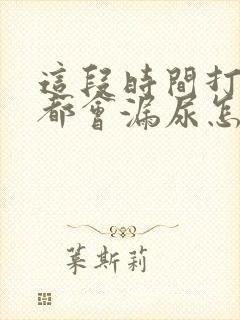 這段時間打
都會漏尿怎
葉斯莉